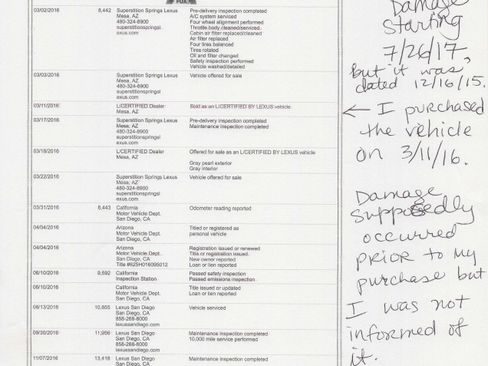 03/02/2016 8,442 Superstition Springs Lexus Pre-delivery inspection completed
Mesa, AZ A/C system serviced
480-324-6900 Four wheel alignment performed
superstitionspringsl Throttle body cleaned/serviced
exus.com Cabin air filter replaced/cleaned
Air filter replaced
Four tires balanced
Tires rotated
Oil and filter changed
Safety inspection performed
Vehicle washed/detailed
03/03/2016 Superstition Springs Lexus Vehicle offered for sale
Mesa, AZ
480-324-6900
superstitionspringsl
exus.com
03/11/2016 L/CERTIFIED Dealer Sold as an L/CERTIFIED BY LEXUS vehicle
Mesa, AZ
03/17/2016 Superstition Springs Lexus Pre-delivery inspection completed
Mesa, AZ Maintenance inspection completed
480-324-6900
superstitionspringsl
exus.com
03/18/2016 L/CERTIFIED Dealer Offered for sale as an L/CERTIFIED BY LEXUS vehicle
Mesa, AZ
Gray pearl exterior
Gray interior
03/22/2016 Superstition Springs Lexus Vehicle offered for sale
Mesa, AZ
480-324-6900
superstitionspringsl
exus.com
03/31/2016 8,443 California Odometer reading reported
Motor Vehicle Dept.
San Diego, CA
04/04/2016 Arizona Titled or registered as
Motor Vehicle Dept. personal vehicle
San Diego, CA
04/04/2016 Arizona Registration issued or renewed
Motor Vehicle Dept. Title or registration issued
San Diego, CA New owner reported
Title Loan or lien reported
06/10/2016 9,592 California Passed safety inspection
Inspection Station Passed emissions inspection
06/10/2016 California Title issued or updated
Motor Vehicle Dept. Loan or lien reported
San Diego, CA
08/13/2016 10,655 Lexus San Diego Vehicle serviced
San Diego, CA
858-268-8000
lexussandiego.com
09/30/2016 11,956 Lexus San Diego Maintenance inspection completed
San Diego, CA 10,000 mile service performed
858-268-8000
lexussandiego.com
11/07/2016 13,418 Lexus San Diego Maintenance inspection completed
San Diego, CA
Damage
starting
7/26/17,
but it was
dated 12/16/15.
← I purchased
the vehicle
on 3/11/16.
Damage
supposedly
occurred
prior to my
purchase but
I was not
informed of
it.